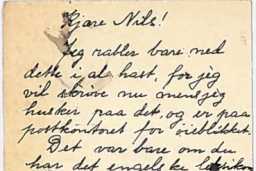 Kjære Nils!
Jeg rabler bare ned
dette i al hast, for jeg
vil skrive nu mens jeg
husker paa det, og er paa
postkontoret for øieblikket.
Det var bare om du
har det engelske